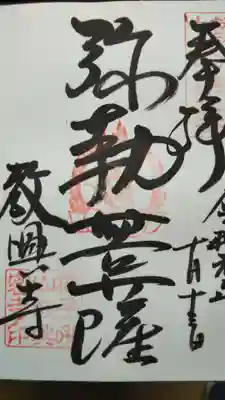 奉拝
令和元年
十月十三日
弥勒菩薩
教興寺